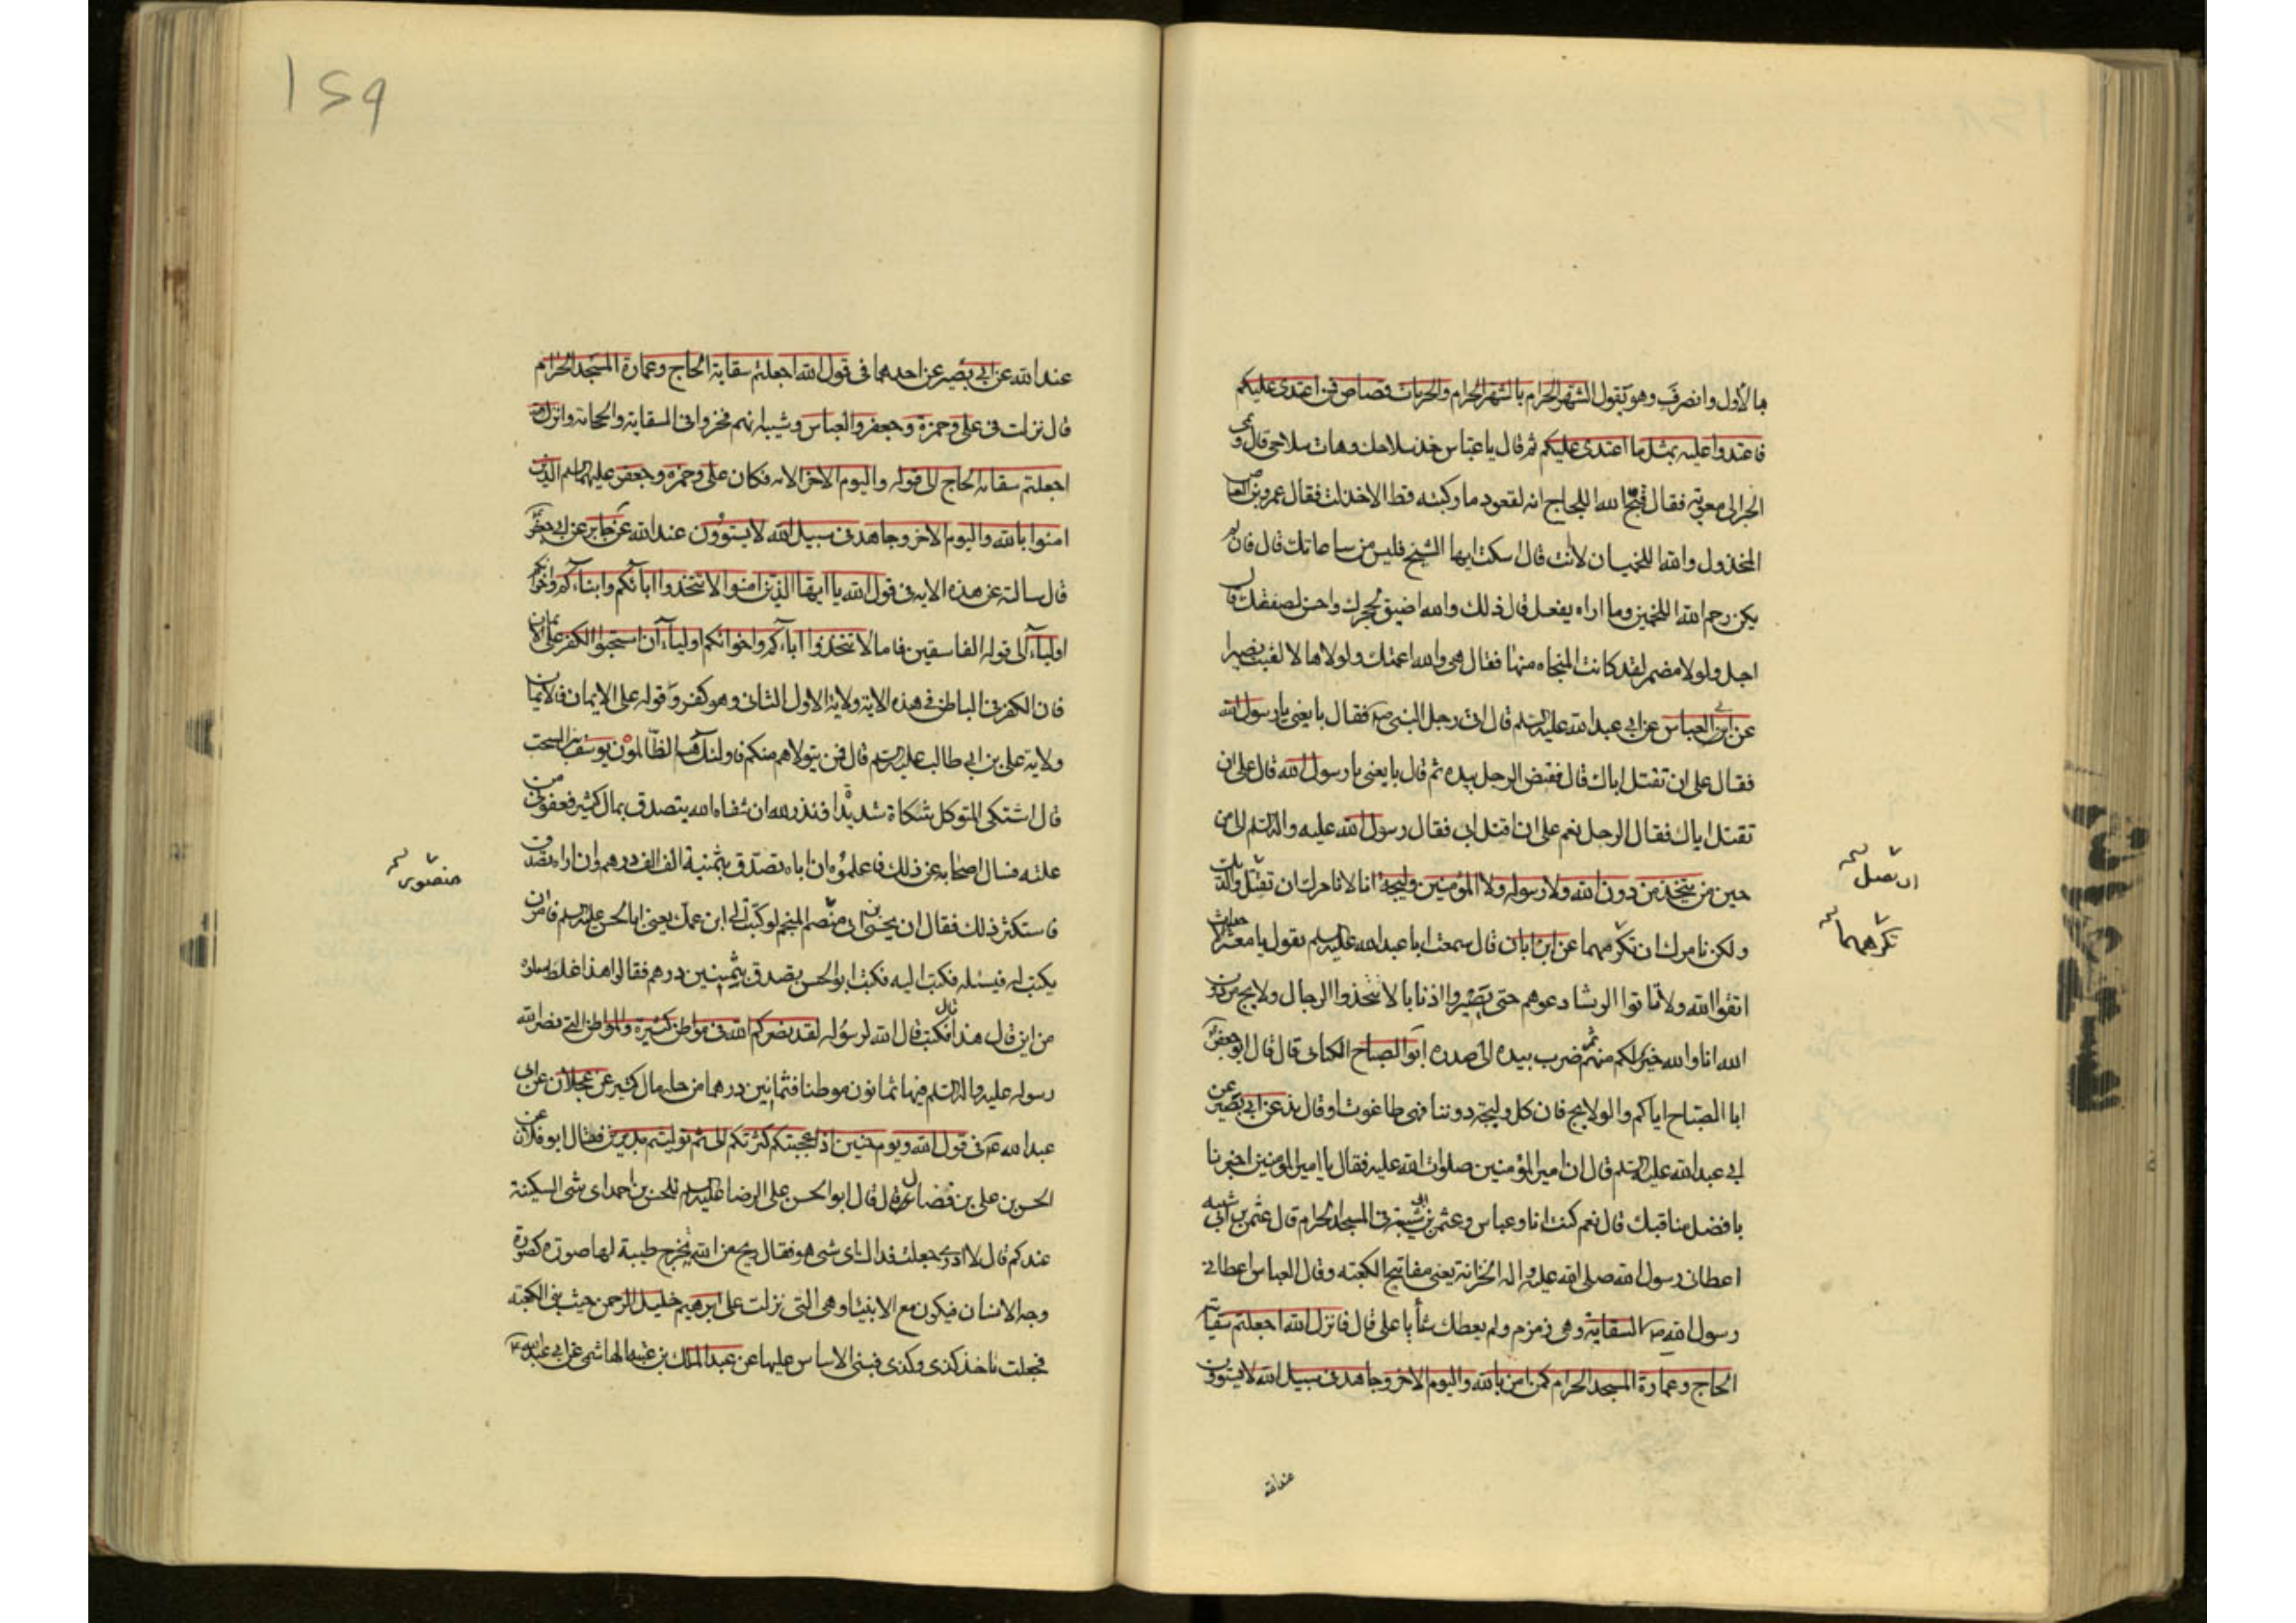 بها الأول وانصرف وهو يقول الشهر الحرام بالشهر الحرام والحرمات قصاص فمن اعتدى عليكم
فاعتدوا عليه بمثل ما اعتدى عليكم ثم قال يا عباس خذ سلاحك وهات سلاحي قال ونمى
الخبر الى معوية فقال قبح الله اللجاج انه لقعود ما ركبته قط الا خذلت فقال عمرو بن العاص
المخذول والله اللخميان لا انت قال اسكت ايها الشيخ فليس من ساعاتك قال فان لم
يكن رحم الله اللخميين وما اراه يفعل قال ذلك والله اضيق لحجرك واخسر لصفقتك قال
اجل ولولا مصر لقد كانت المنجاه منها فقال هي والله اعمتك ولولاها لالفيت بصيرا
عن ابى العباس عن ابي عبد الله عليه السلم قال اتى رجل النبي ص فقال بايعني يا رسول الله
فقال على ان تقتل اباك قال فقبض الرجل يده ثم قال بايعني يا رسول الله قال على ان
تقتل اباك فقال الرجل نعم على ان اقتل ابي فقال رسول الله عليه واله السلم الان
حين من يتخذ من دون الله ولا رسوله ولا المؤمنين وليجة انا لا نامرك ان تقتل والديك
ولكن نامرك ان تكرمهما عن ابن ابان قال سمعت ابا عبد الله عليه السلم يقول يا معشر الاحداث
اتقوا الله ولا تاتوا الرؤسا دعوهم حتى يصيروا اذنابا لا تتخذوا الرجال ولايج من دون
الله انا والله خير لكم منهم ثم ضرب بيده الى صدره ابو الصباح الكناني قال قال ابو جعفر
ابا الصباح اياكم والولايج فان كل وليجة دوننا فهي طاغوت او قال ند عن ابي بصير عن
ابي عبد الله عليه السلم قال ان امير المؤمنين صلوات الله عليه فقال يا امير المؤمنين اخبرنا
بافضل مناقبك قال نعم كنت انا وعباس وعثمن بن ابى شيبة في المسجد الحرام قال عثمن بن ابي شيبه
اعطاني رسول الله صلى الله عليه واله الخزانة يعني مفاتيح الكعبة وقال العباس اعطاني
رسول الله ص السقاية وهي زمزم ولم يعطك شأ يا علي قال فانزل الله اجعلتم سقاية
الحاج وعمارة المسجد الحرام كمن امن بالله واليوم الاخر وجاهد في سبيل الله لا يستوون
عند الله
تكرمهما
159
عند الله عن ابي بصير عن احدهما في قول الله اجعلتم سقاية الحاج وعمارة المسجد الحرام
قال نزلت في علي وحمزة وجعفر والعباس وشيبه انهم فخروا في السقاية والحجابة وانزل الله
اجعلتم سقاية الحاج الى قوله واليوم الاخر الايه فكان علي وحمزه وجعفر عليهم السلم الذين
امنوا بالله واليوم الاخر وجاهد في سبيل الله لا يستوون عند الله عن جابر عن ابي جعفر
قال سالته عن هذه الايه في قول الله يا ايها الذين امنوا لا تتخذوا ابائكم وابناءكم واخوانكم
اولياء الى قوله الفاسقين فاما لا تتخذوا آباءكم واخوانكم اولياء ان استحبوا الكفر على الايمان
فان الكفر في الباطن في هذه الاية ولاية الاول والثاني وهو كفر وقوله على الايمان فالايمان
ولاية علي بن ابي طالب عليه السلم قال فمن يتولهم منكم فاولئك هم الظالمون يوسف بن السخت
قال اشتكى المتوكل شكاة شديدا فنذر لله ان شفاه الله يتصدق بمال كثير فعوفي من
علته فسال اصحابه عن ذلك فاعلموه ان اباه تصدق بثمنية الف الف درهم وان اراه تصدق
فاستكثر ذلك فقال ابن يحيى بن ابي منصم المنجم لو كتبت الى ابن عمك يعني ابا الحسن عليه السلم فامر ان
يكتب له فيسئله فكتب اليه فكتب ابو الحسن يصدق بثمنين درهم فقالوا هذا غلط سلوه
من اين قال هذا فكتب قال الله لرسوله لقد نصركم الله في مواطن كثيرة والمواطن التي نصر الله
رسوله عليه واله السلم فيها ثمانون موطنا فثمانين درهما من حله مال كثير عن عجلان عن ابي
عبد الله ع في قول الله ويوم حنين اذ اعجبتكم كثرتكم الى ثم توليتم مدبرين فقال ابو فلان عن
الحسن بن علي بن فضال قال قال ابو الحسن علي الرضا عليه السلم للحسن بن احمد اي شي السكينة
عندكم قال لا ادري جعلت فداك اي شي هو فقال ريح من الله يخرج طيبة لها صورة كصورة
وجه الانسان فيكون مع الانبياء وهي التي نزلت على ابرهيم خليل الرحمن حيث بنى الكعبة
فجعلت تاخذ كذى وكذى فبنى الاساس عليها عن عبد الملك بن عتبه الهاشمي عن ابي عبد الله ع
منصور